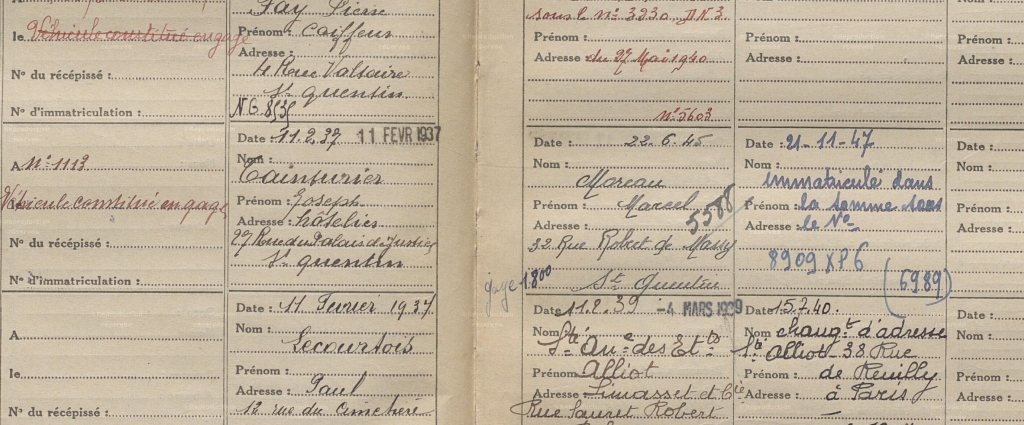 le Véhicule constitué en gage
N° du récépissé :
N° d'immatriculation :
A N° 1113
Véhicule constitué en gage
N° du récépissé :
N° d'immatriculation :
A
le
N° du récépissé :
Fay Pierre
Prénom : Coiffeur
Adresse :
4 Rue Voltaire
St quentin
Date : 11.2.37 11 FEVR 1937
Nom :
Tainturier
Prénom : Joseph
Adresse : hôtelier
27 Rue du Palais de Justice
St quentin
Date : 11 Fevrier 1937
Nom :
Lecourtois
Prénom :
Adresse : Paul
13 rue du Cimetière
sous le n° 3230 DN3
Prénom :
Adresse : du 27 Mai 1940
N° 5603
Date : 22.6.45
Nom :
Moreau
Prénom : Marcel
5588
Adresse :
32 Rue Robert de Massy
St Quentin
gage 1.800
Date 11.2.39 -4 MARS 1939
Nom Sté An me des Ets
Prénom Alliot
Adresse : Limasset et Cie
Rue Robert
Prénom :
Adresse :
Date : 21-11-47
Nom :
immatriculé dans
Prénom : la somme sous
Adresse : le N°
8909 XP6
(6989)
Date : 15.7.40.
Nom changt d'adresse
Sté Alliot 38 Rue
Prénom de Reuilly
Adresse : à Paris
Prénom :
Date :
Nom :
Prénom :
Adresse :
Date :
Nom :
Prénom :
Adresse :